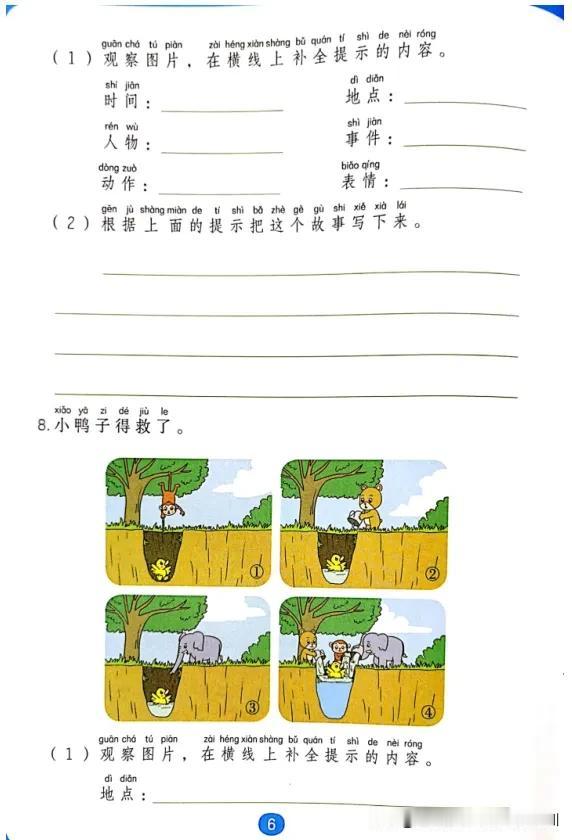 guān chá tú piàn zài héng xiàn shàng bǔ quán tí shì de nèi róng
（1）观察图片，在横线上补全提示的内容。
shí jiān dì diǎn
时间： 地点：
rén wù shì jiàn
人物： 事件：
dòng zuò biǎo qíng
动作： 表情：
gēn jù shàng miàn de tí shì bǎ zhè gè gù shi xiě xià lái
（2）根据上面的提示把这个故事写下来。
xiǎo yā zi dé jiù le
8.小鸭子得救了。
① ②
③ ④
guān chá tú piàn zài héng xiàn shàng bǔ quán tí shì de nèi róng
（1）观察图片，在横线上补全提示的内容。
dì diǎn
地点：
6